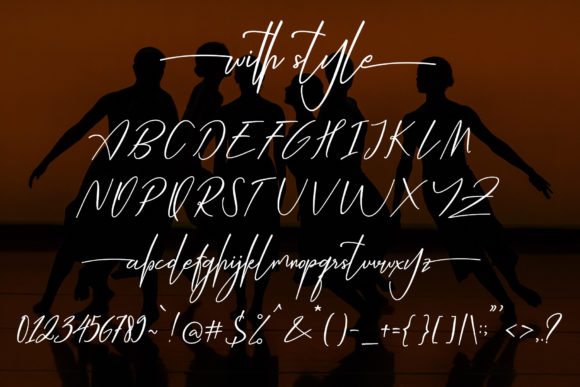 with style
ABCDEFGHIJKLM
NOPQRSTUVWXYZ
abcdefghijklmnopqrstuvwxyz
0123456789~`!@#$%^&*()-_+={}[]|\:;"'<>,.?